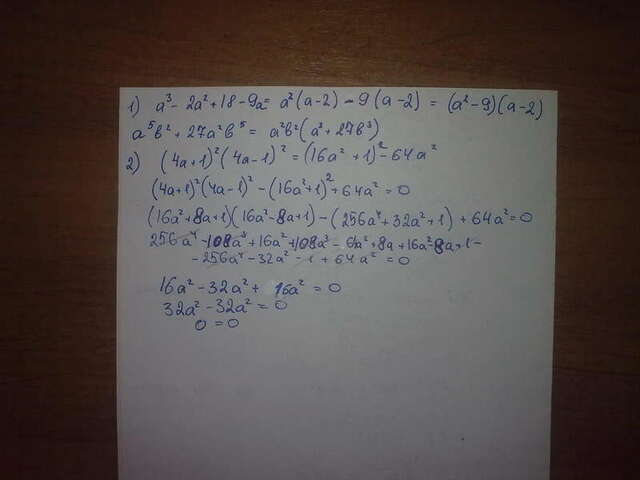 1) a³ - 2a² + 18 - 9a = a²(a-2) - 9(a-2) = (a²-9)(a-2)
a⁵b² + 27a²b⁵ = a²b²(a³ + 27b³)
2) (4a+1)²(4a-1)² = (16a² + 1)² - 64a²
(4a+1)²(4a-1)² - (16a²+1)² + 64a² = 0
(16a²+8a+1)(16a²-8a+1) - (256a⁴ + 32a² + 1) + 64a² = 0
256a⁴ - 108a³ + 16a² + 108a³ - 64a² + 8a + 16a² - 8a + 1 -
- 256a⁴ - 32a² - 1 + 64a² = 0
16a² - 32a² + 16a² = 0
32a² - 32a² = 0
0 = 0